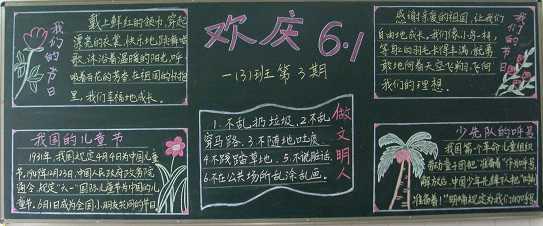 欢庆6.1
一(3)班第3期
我们的节日
戴上鲜红的领巾,穿起
漂亮的衣裳,快乐地跳舞唱
歌,沐浴着温暖的阳光,呼
吸着百花的芳香,在祖国的怀抱
里,我们幸福地成长。
我们的节日
感谢亲爱的祖国,让我们
自由地成长。我们像小鸟一样,
等身上的羽毛长得丰满,就勇
敢地向着天空飞翔,飞向
我们的理想。
我国的儿童节
1931年,我国规定4月4日为中国儿童
节,1949年12月23日,中国人民政府政务院
通令,规定"六一"国际儿童节为中国的儿
童节,6月1日成为全国小朋友共同的节日
做文明人
1.不乱扔垃圾.2.不乱
穿马路.3.不随地吐痰.
4.不践踏草地.5.不说脏话.
6.不在公共场所乱涂乱画.
少先队的呼号
我国第一个革命儿童组织
劳动童子团把"准备着"作为呼号,
解放后,中国少年先锋队把
"准备着!"明确规定为我们的呼号